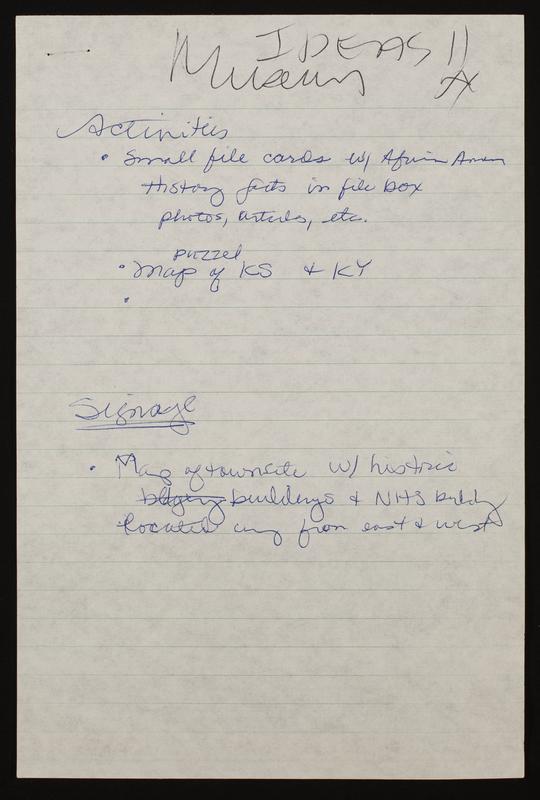 IDEAS!!
Museum
Activities
• Small file cards w/ African Amer
History facts in file box
photos, articles, etc.
puzzel
• Map of KS & KY
•
Signage
• Map of townsite w/ historic
buildings & NHS building
located from east & west